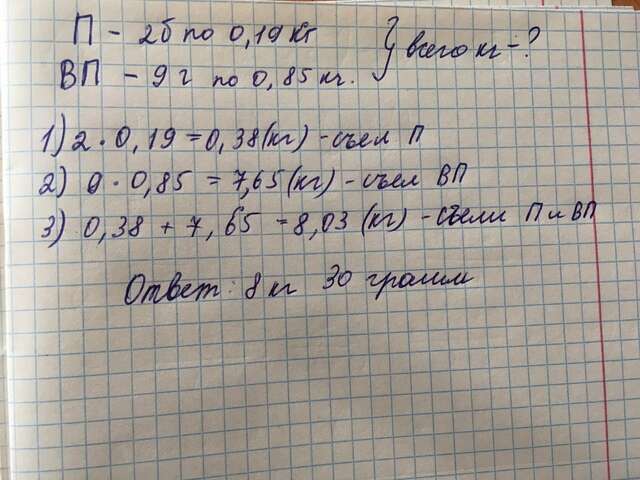 П - 2б по 0,19 кг } всего кг - ?
ВП - 9 г по 0,85 кг.
1) 2 · 0,19 = 0,38 (кг) - съел П
2) 9 · 0,85 = 7,65 (кг) - съел ВП
3) 0,38 + 7,65 = 8,03 (кг) - съели П и ВП
Ответ: 8 кг 30 грамм